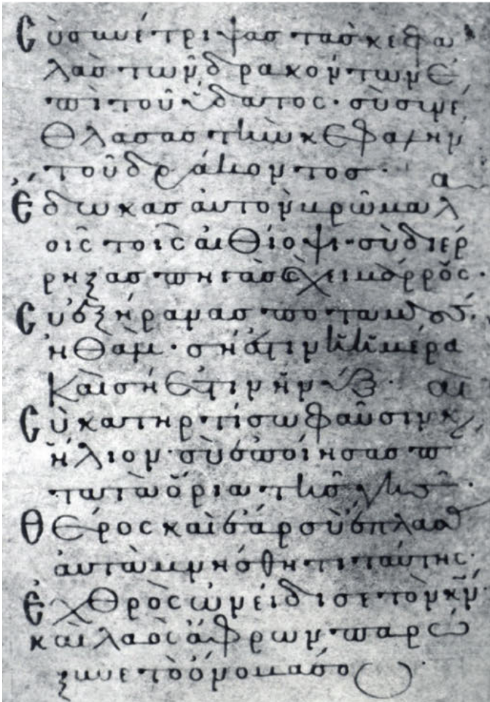 Σὺ συνέτριψας τὰς κεφα
λὰς τῶν δρακόντων ἐ
πὶ τοῦ ὕδατος· σὺ συνέ
θλασας τὴν κεφαλὴν
τοῦ δράκοντος·
Ἔδωκας αὐτὸν βρῶμα λα
οῖς τοῖς αἰθίοψι· σὺ διέρ
ρηξας πηγὰς καὶ χειμάρρους·
Σὺ ἐξήρανας ποταμοὺς
ἠθάμ· σή ἐστιν ἡ ἡμέρα
καὶ σή ἐστιν ἡ νύξ·
Σὺ κατηρτίσω φαῦσιν καὶ
ἥλιον· σὺ ἐποίησας π
άντα τὰ ὅρια τῆς γῆς·
Θέρος καὶ ἔαρ σὺ ἔπλασας
αὐτά μνήσθητι ταύτης·
Ἐχθρὸς ὠνείδισε τὸν κν
καὶ λαὸς ἄφρων παρώ
ξυνε τὸ ὄνομά σου·